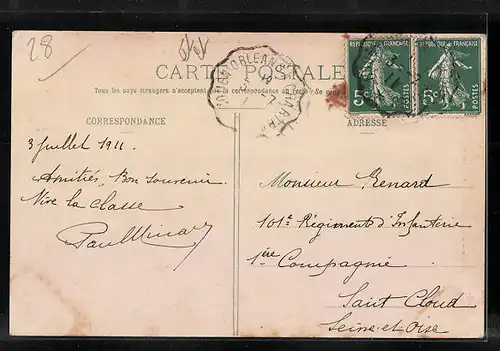 28
CARTE POSTALE
Tous les pays étrangers n'acceptent pas la correspondance au
CORRESPONDANCE
ADRESSE
REPUBLIQUE FRANÇAISE
5c
POSTES
REPUBLIQUE FRANÇAISE
5c
POSTES
3 juillet 1911.
Amitiés, Bon souvenir
Vive la classe
Paul
Monsieur Renard
101e Régiment d'Infanterie
1ère Compagnie
Saint Cloud
Seine-et-Oise